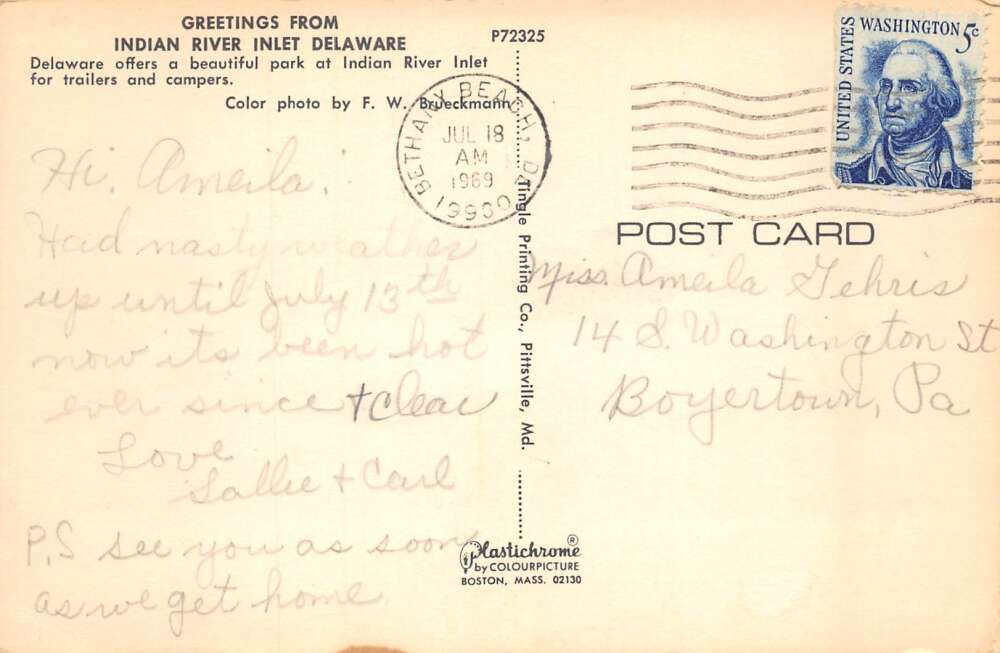 GREETINGS FROM
INDIAN RIVER INLET DELAWARE
Delaware offers a beautiful park at Indian River Inlet
for trailers and campers.
Color photo by F. W. Brueckmann
P72325
BETHANY BEACH, DEL
JUL 18
AM
1969
19930
UNITED STATES
WASHINGTON 5c
POST CARD
Hi, Ameila:
Had nasty weather
up until July 13th
now its been hot
ever since + clear
Love
Sallie + Carl
P.S see you as soon
as we get home
Tingle Printing Co., Pittsville, Md.
Miss. Ameila Gehris
14 S. Washington St
Boyertown, Pa
Plastichrome®
by COLOURPICTURE
BOSTON, MASS. 02130